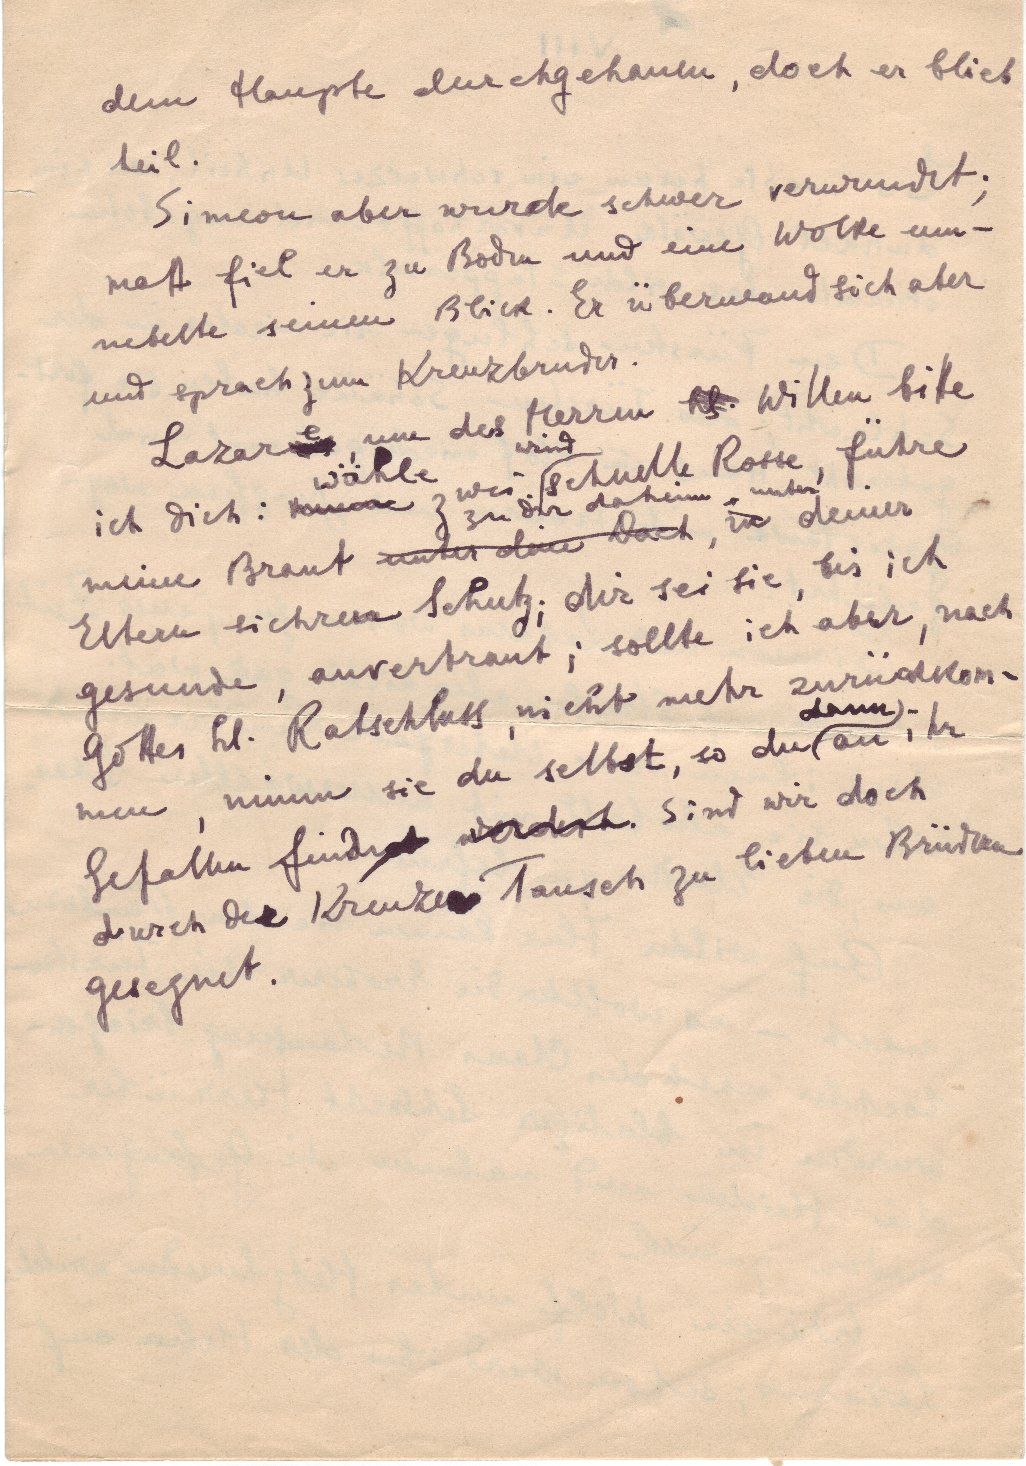 dem Haupte durchgehauen, doch er blieb
heil.
Simeon aber wurde schwer verwundet;
matt fiel er zu Boden und eine Wolke um-
nebelte seinen Blick. Er überwand sich aber
und sprach zum Kreuzbruder.
Lazare, um des Herrn Willen bitte
wähle wind
ich dich: zwei schnelle Rosse, führe
zu dir daheim unter
meine Braut unter dein Dach, in deiner
Eltern sichren Schutz; dir sei sie, bis ich
gesunde, anvertraut; sollte ich aber, nach
Gottes hl. Ratschluss, nicht mehr zurückkom-
dann
men, nimm sie du selbst, so du an ihr
Gefallen findest werdest. Sind wir doch
durch der Kreuze Tausch zu lieben Brüdern
gesegnet.